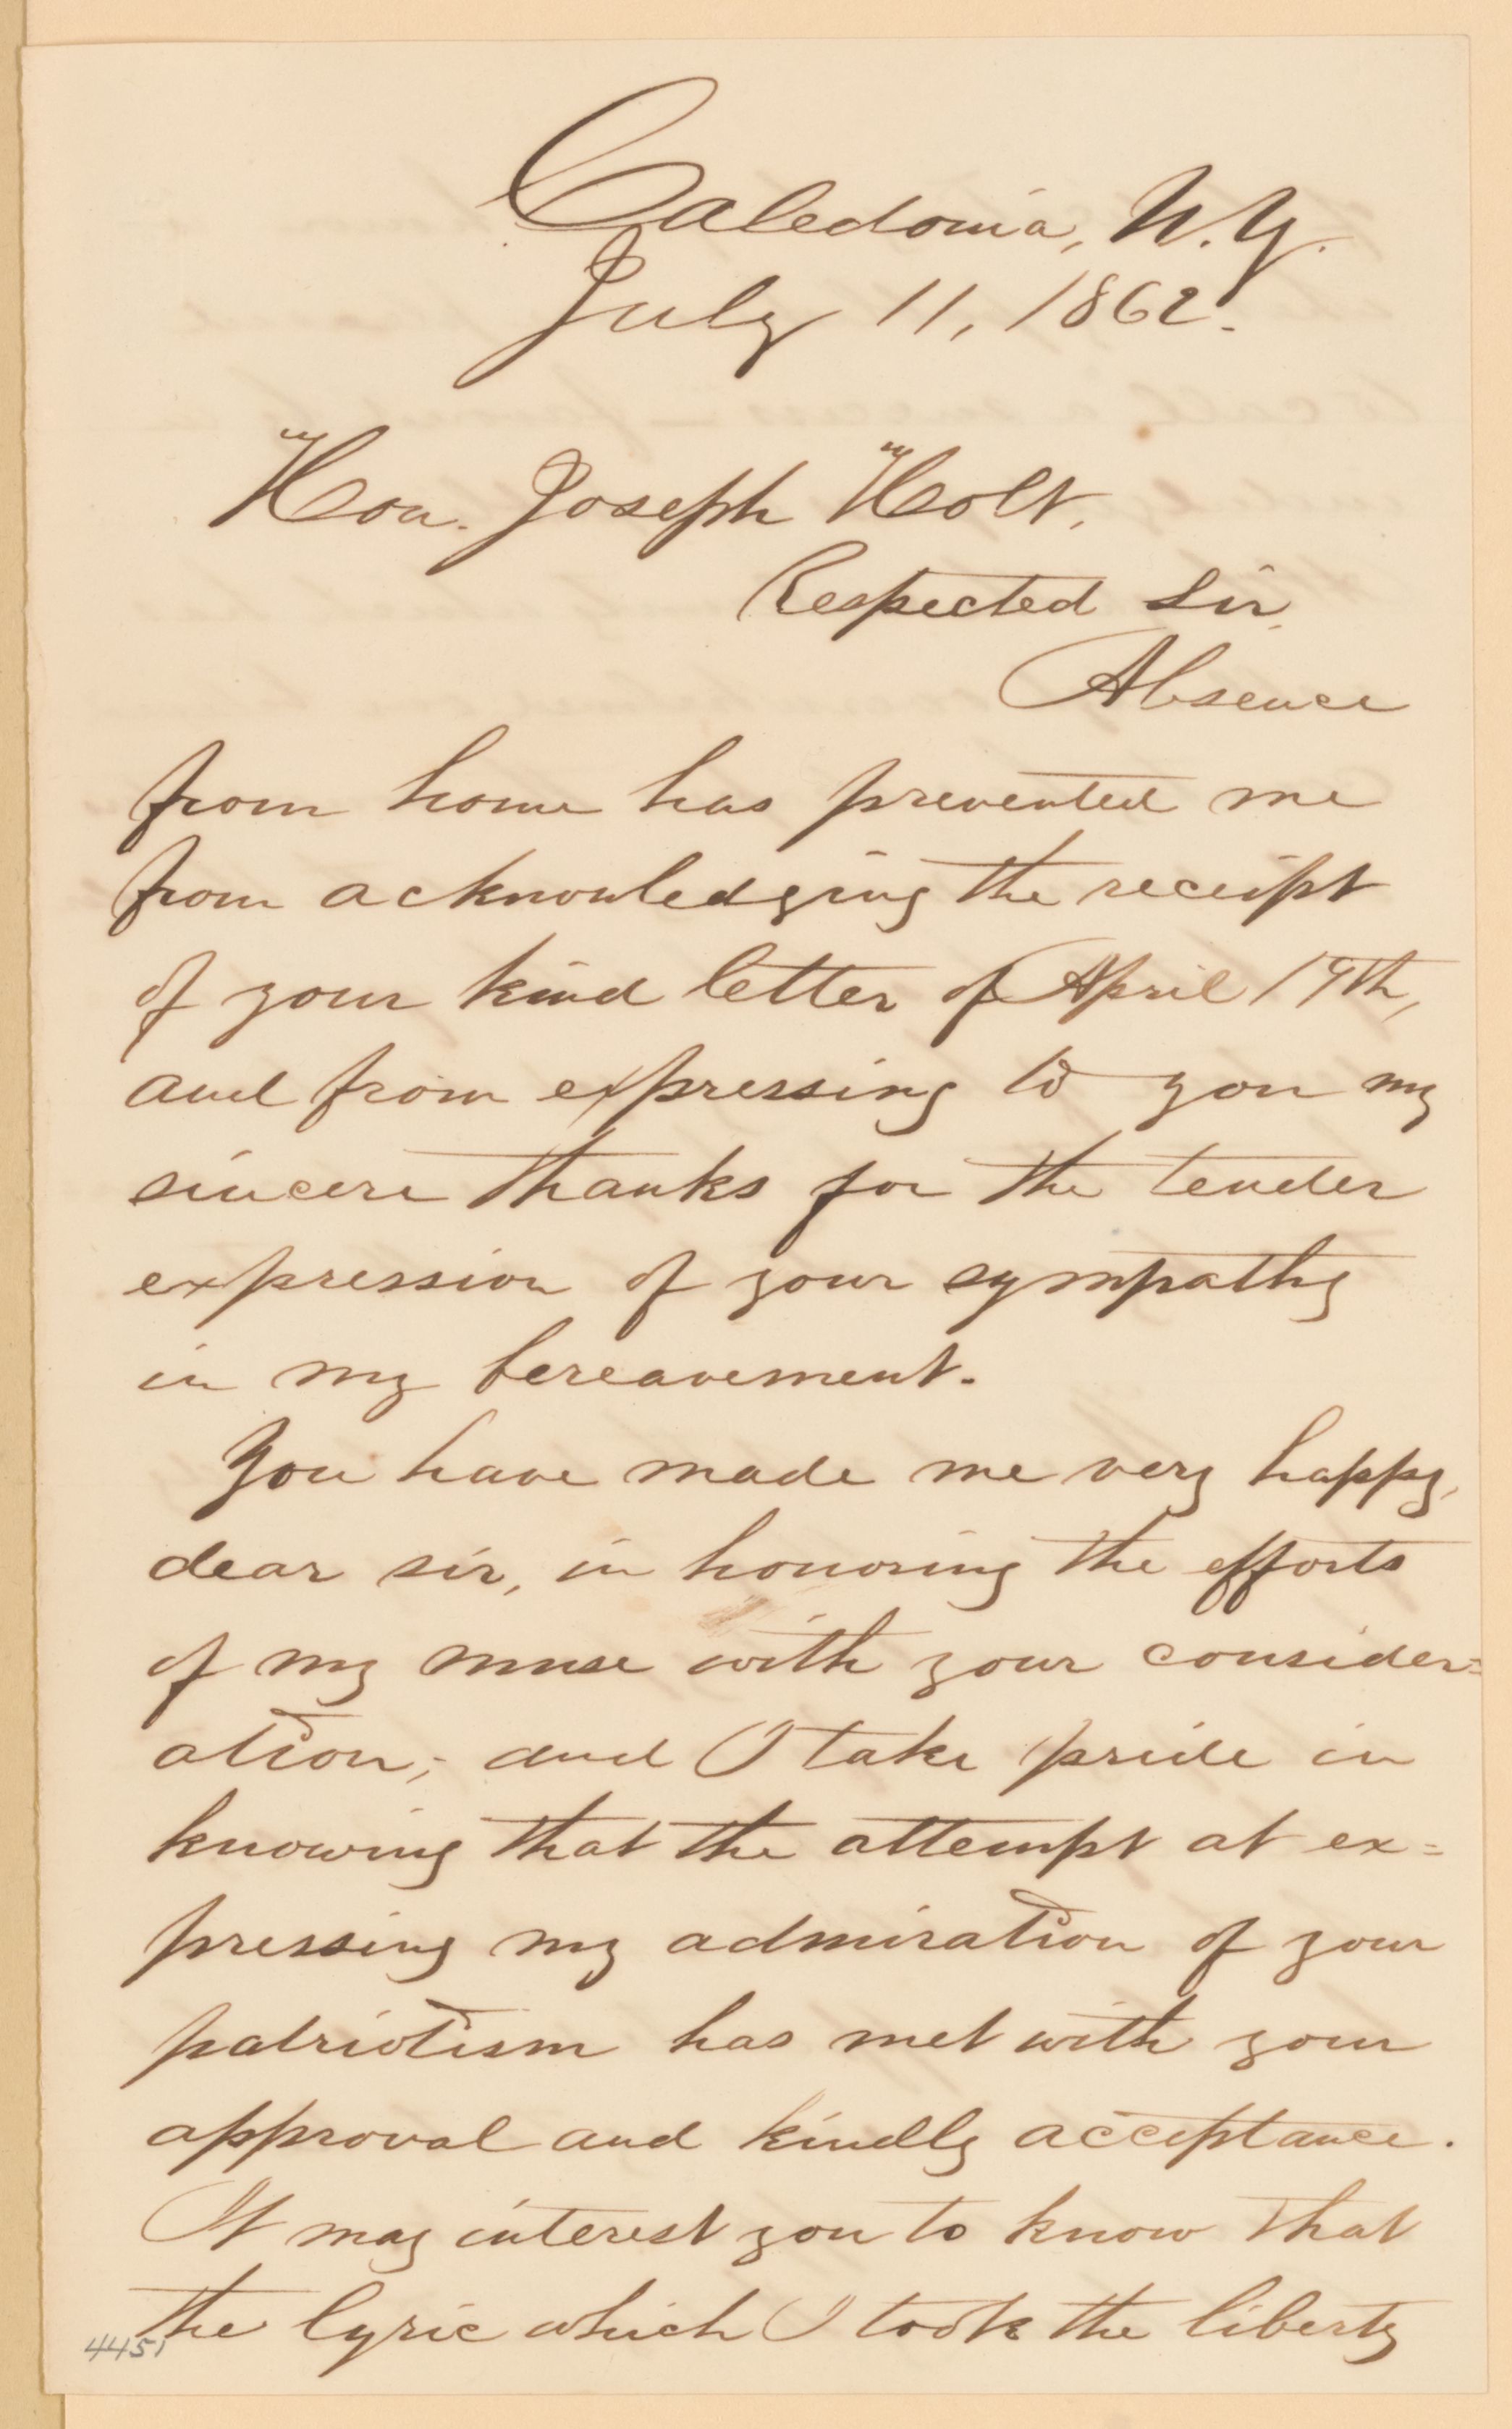 Caledonia, N.Y.
July 11, 1862.
Hon. Joseph Holt,
Respected Sir,
Absence
from home has prevented me
from acknowledging the receipt
of your kind letter of April 19th,
and from expressing to you my
sincere thanks for the tender
expression of your sympathy
in my bereavement.
You have made me very happy,
dear sir, in honoring the efforts
of my muse with your consider=
ation; and I take pride in
knowing that the attempt at ex=
pressing my admiration of your
patriotism has met with your
approval and kindly acceptance.
It may interest you to know that
the lyric which I took the liberty
4451